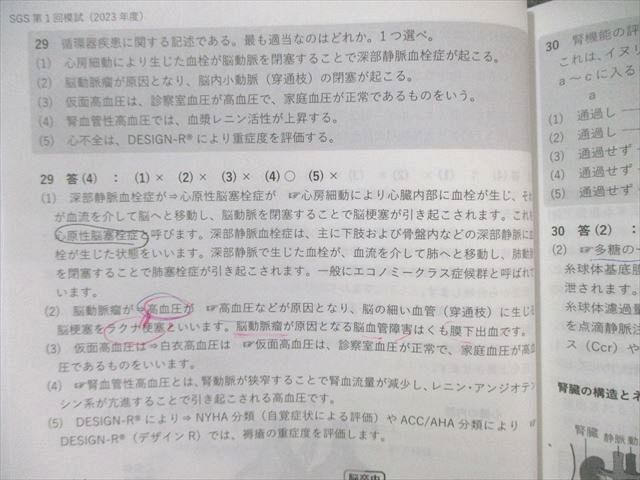 SGS 第1回模試（2023年度）
29 循環器疾患に関する記述である。最も適当なのはどれか。1つ選べ。
(1) 心房細動により生じた血栓が脳動脈を閉塞することで深部静脈血栓症が起こる。
(2) 脳動脈瘤が原因となり、脳内小動脈（穿通枝）の閉塞が起こる。
(3) 仮面高血圧は、診察室血圧が高血圧で、家庭血圧が正常であるものをいう。
(4) 腎血管性高血圧では、血漿レニン活性が上昇する。
(5) 心不全は、DESIGN-R®により重症度を評価する。
29 答(4) ： (1)× (2)× (3)× (4)○ (5)×
(1) 深部静脈血栓症が⇒心原性脳塞栓症が ☞心房細動により心臓内部に血栓が生じ、そ
が血流を介して脳へと移動し、脳動脈を閉塞することで脳梗塞が引き起こされます。これ
心原性脳塞栓症と呼びます。深部静脈血栓症は、主に下肢および骨盤内などの深部静脈に
栓が生じた状態をいいます。深部静脈で生じた血栓が、血流を介して肺へと移動し、肺動
を閉塞することで肺塞栓症が引き起こされます。一般にエコノミークラス症候群と呼ばれ
います。
(2) 脳動脈瘤が⇒高血圧が ☞高血圧などが原因となり、脳の細い血管（穿通枝）に生じ
脳梗塞をラクナ梗塞といいます。脳動脈瘤が原因となる脳血管障害はくも膜下出血です。
(3) 仮面高血圧は⇒白衣高血圧は ☞仮面高血圧は、診察室血圧が正常で、家庭血圧が高
圧であるものをいいます。
(4) ☞腎血管性高血圧とは、腎動脈が狭窄することで腎血流量が減少し、レニン・アンジオテ
シン系が亢進することで引き起こされる高血圧です。
(5) DESIGN-R®により⇒NYHA分類（自覚症状による評価）やACC/AHA分類により ☞
DESIGN-R®（デザインR）では、褥瘡の重症度を評価します。
脳卒中
30 腎機能の評
これは、イヌリ
a～cに入る
a
(1) 通過し
(2) 通過し
(3) 通過せず
(4) 通過せず
(5) 通過せず
30 答(2) ：
(2) ☞多糖の一
糸球体基底膜
泄されます。
糸球体濾過量
を点滴静脈注
ス（Ccr）や
腎臓の構造とネ
腎臓 静脈 動